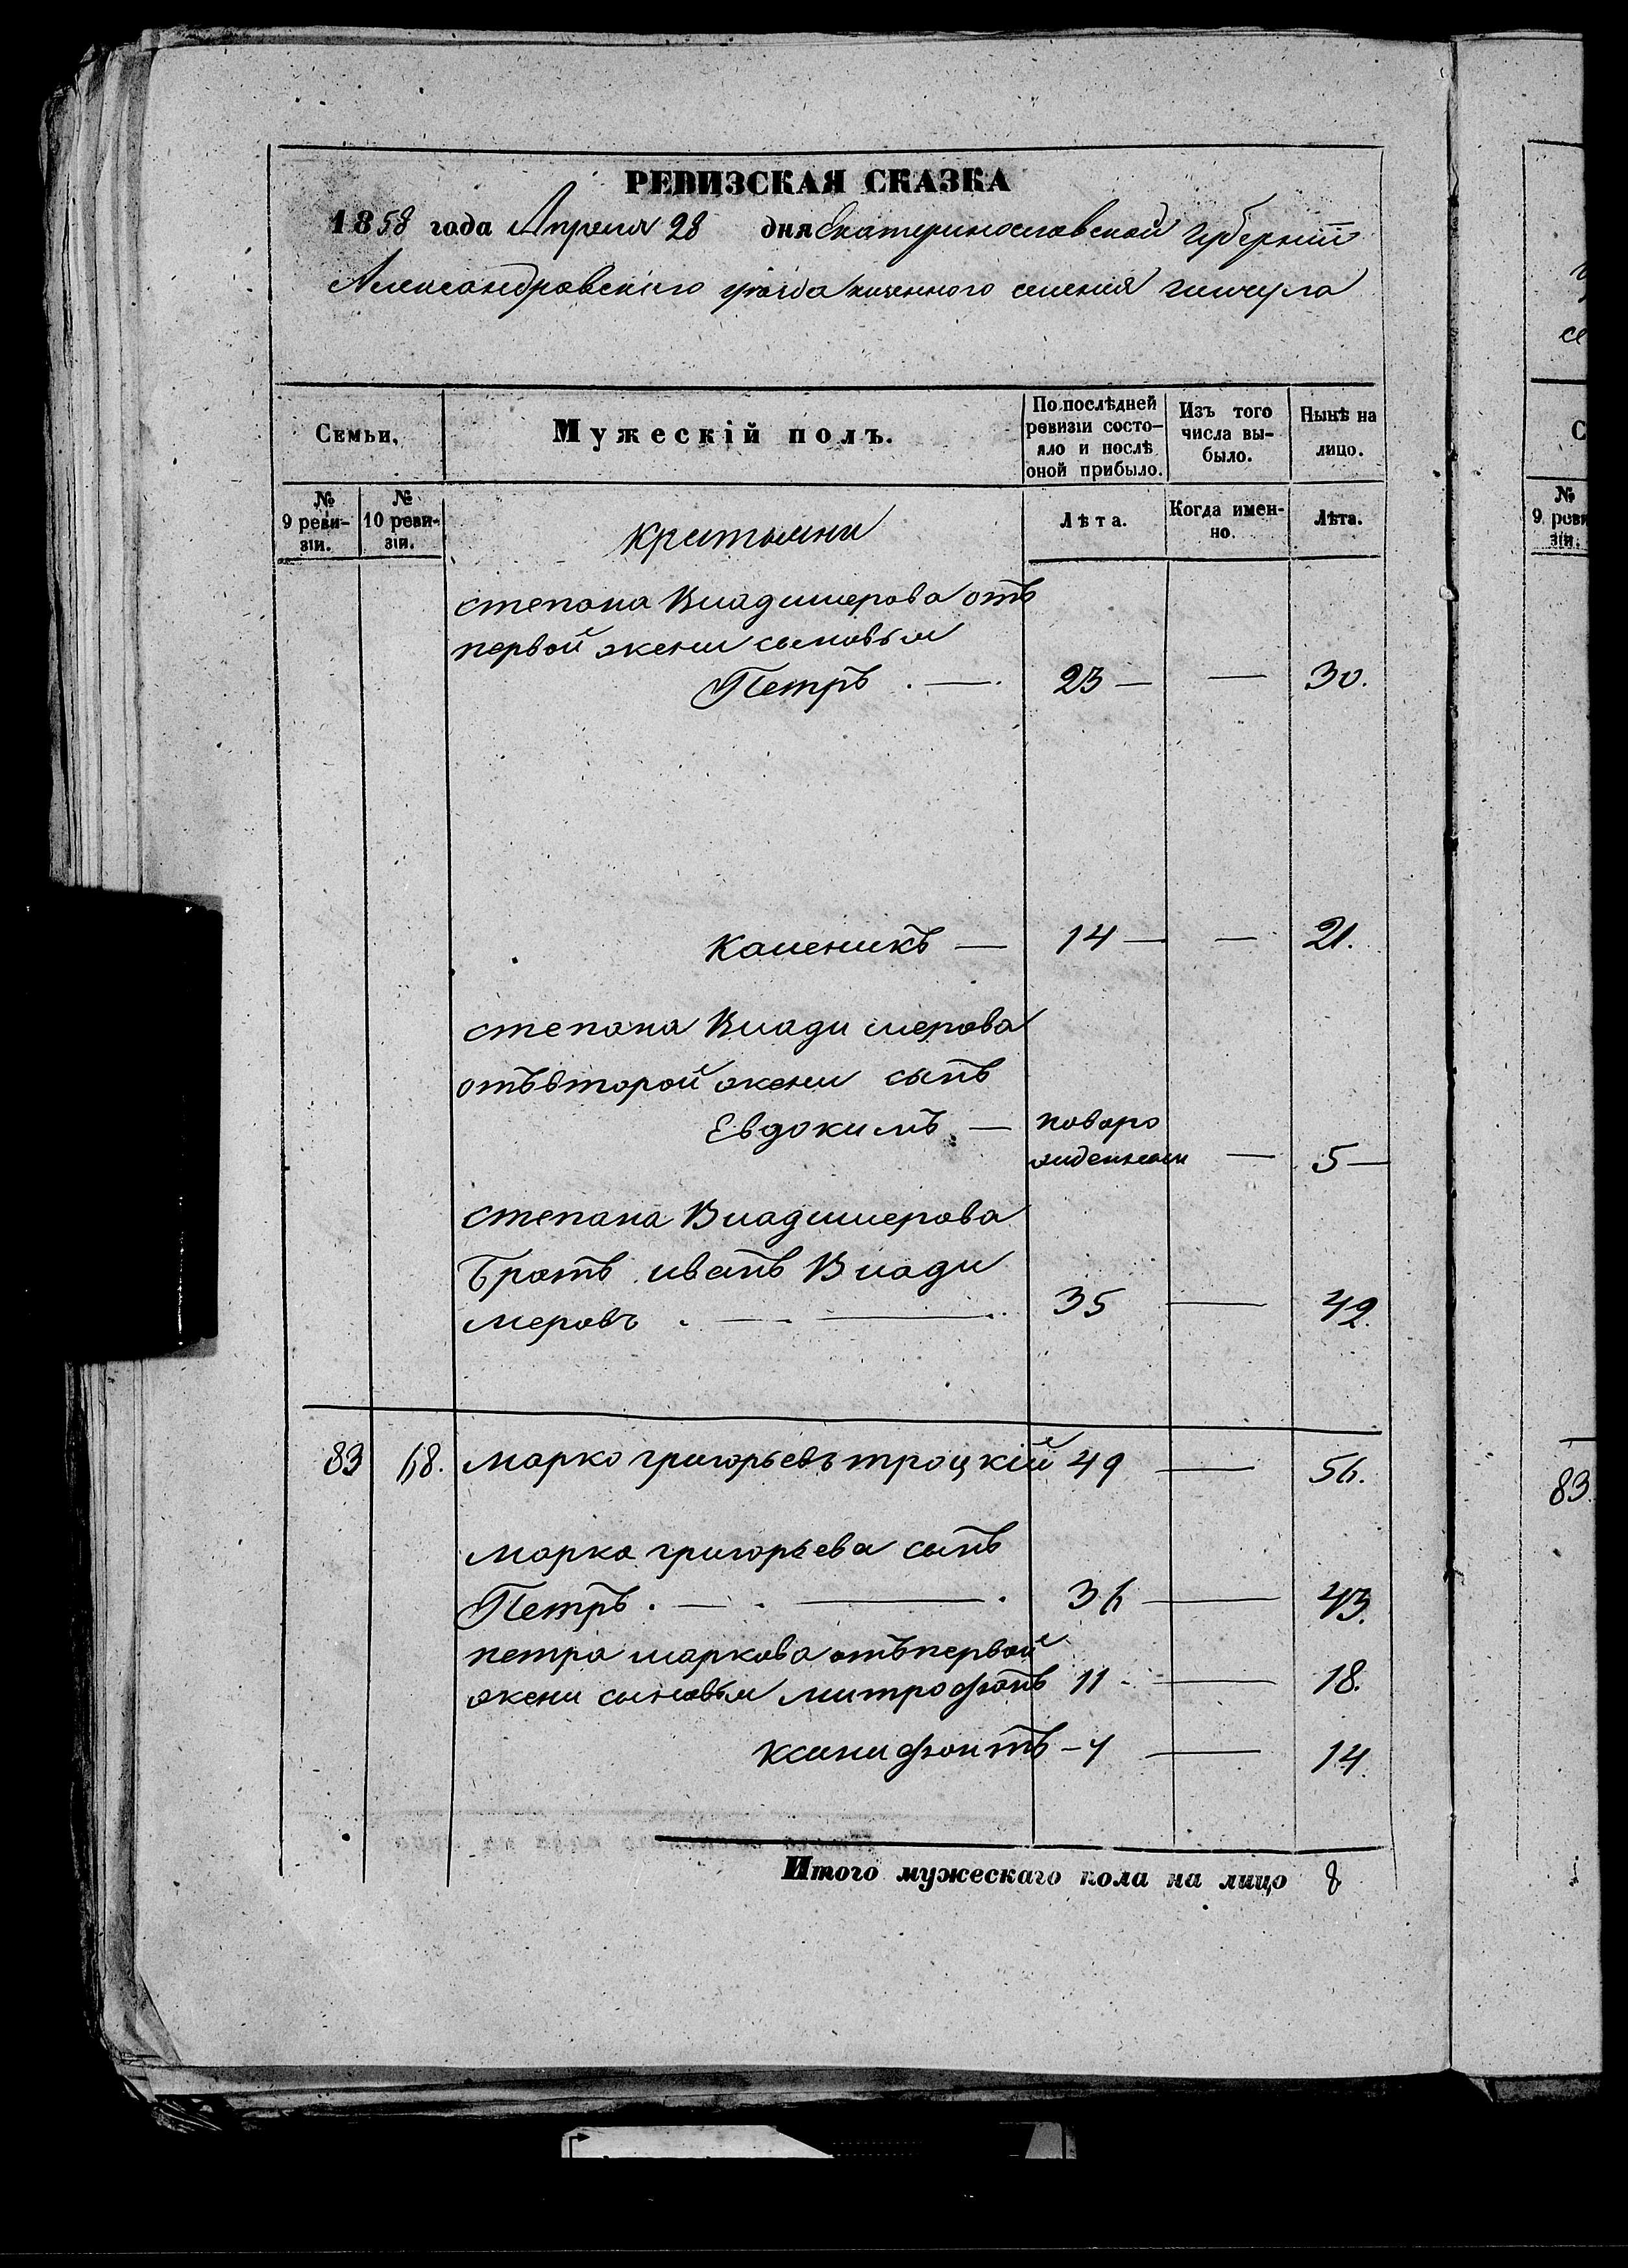 РЕВИЗСКАЯ СКАЗКА
1858 года Апреля 28 дня Екатеринославской Губерніи
Александровскаго уѣзда казенного селенія гичула
Семьи,
Мужескій полъ.
По послѣдней ревизіи состо-
яло и послѣ
оной прибыло.
Изъ того
числа вы-
было.
Нынѣ на
лицо.
№
9 реви-
зіи.
№
10 реви-
зіи.
Лѣта.
Когда имен-
но.
Лѣта.
степана Владимерова отъ
первой жени сыновья
Петръ . — . 23 — — 30.
Каленикъ — 14 — — 21.
степана Влади мерова
отъ второй жени сынъ
Евдокимъ — новоро
жденный — 5 —
степана Владимерова
Братъ иванъ Влади
меровъ . — . — . 35 — 42.
83 68. марко григорьевъ троцкій 49 — 56.
марка григорьева сынъ
Петръ . — . — . 36 — 43.
петра маркова отъ первой
жени сыновья митрофанъ 11 - — 18.
ксинифонтъ — 14.
Итого мужескаго пола на лицо 8
9 реви
зіи.
83.